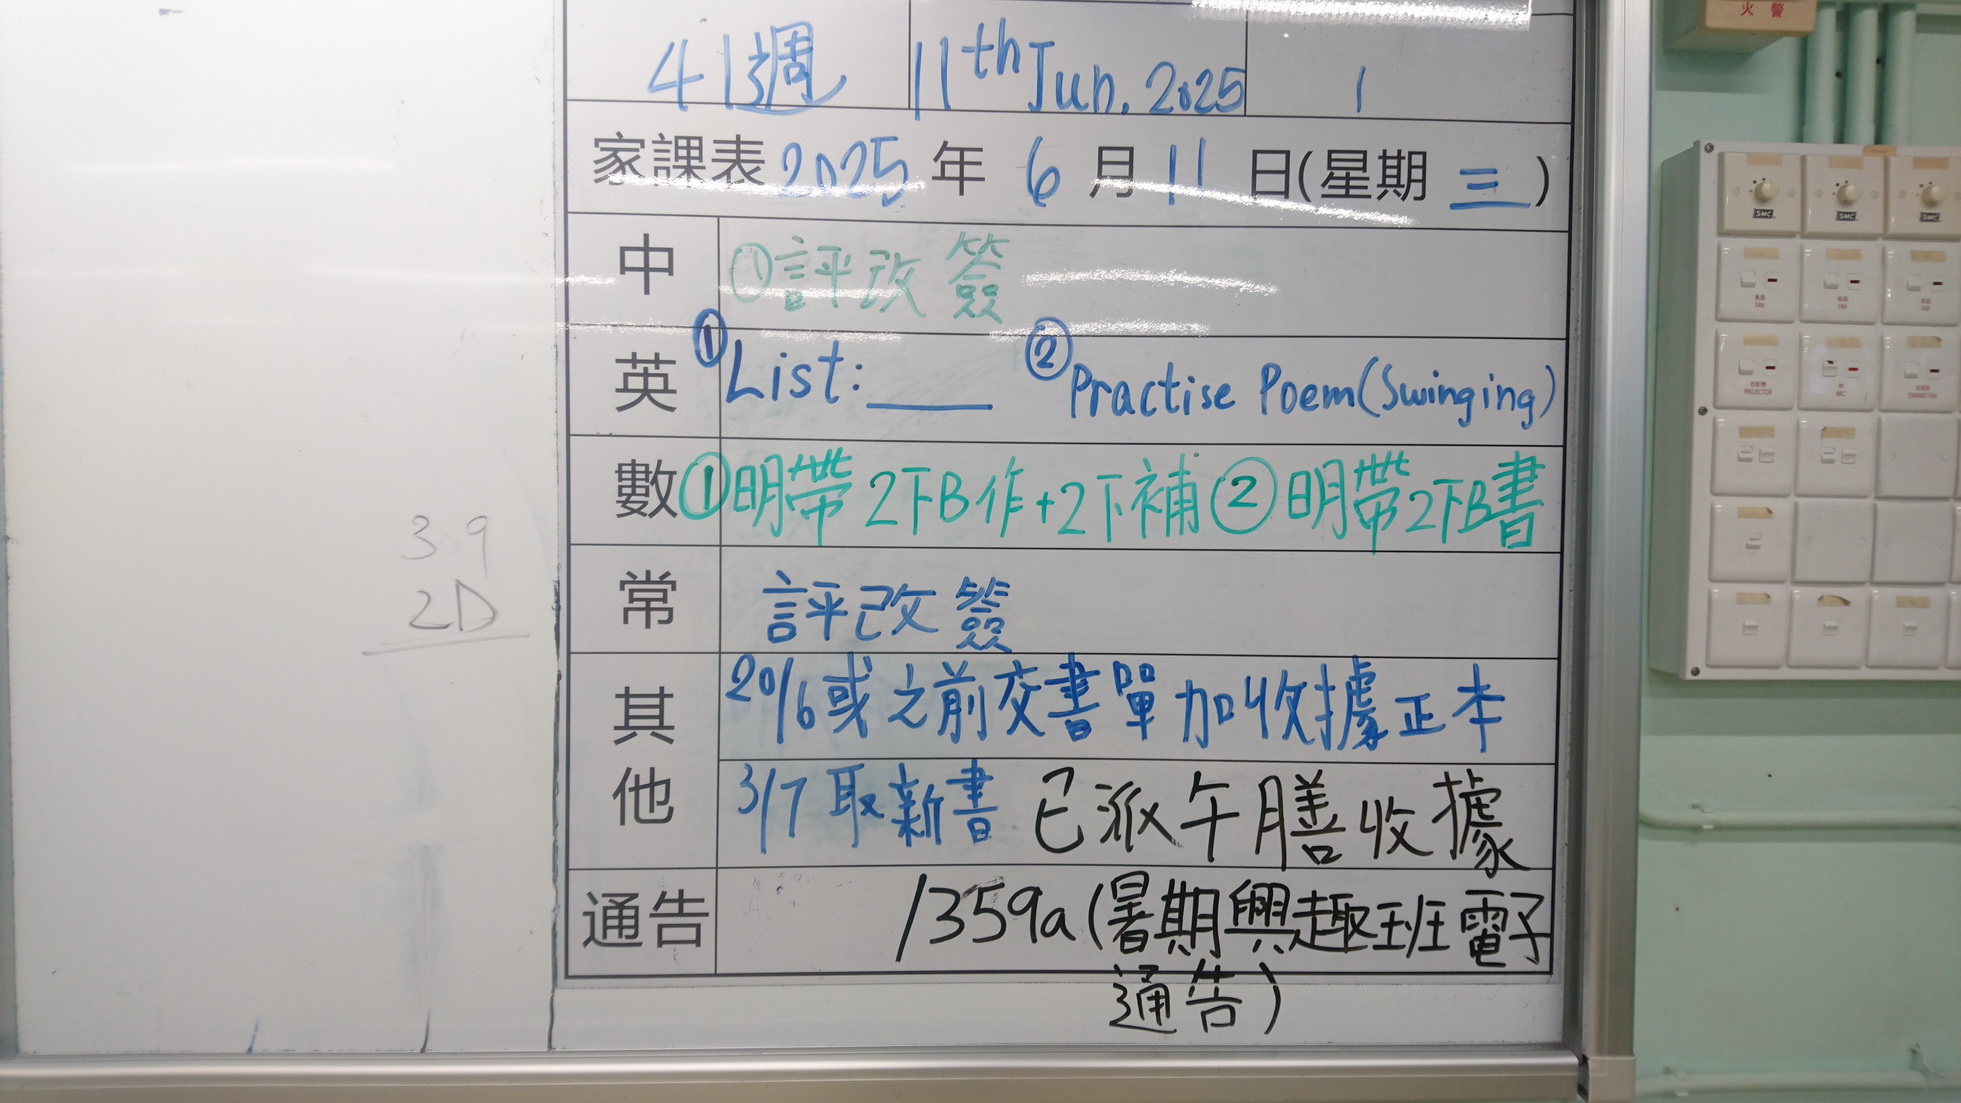 火 警
41週 11th Jun. 2025 1
家課表 2025 年 6 月 11 日(星期 三 )
中 ①評改 簽
英 ①List: ____ ②Practise Poem(Swinging)
數 ①明帶 2下B作+2下補 ②明帶2下B書
常 評改 簽
其他 20/6或之前交書單加收據正本
3/7 取新書 已派午膳收據
通告 1359a(暑期興趣班電子
通告)
3 9
2D
SMC SMC SMC
FAN FAN FAN
PROJECTOR